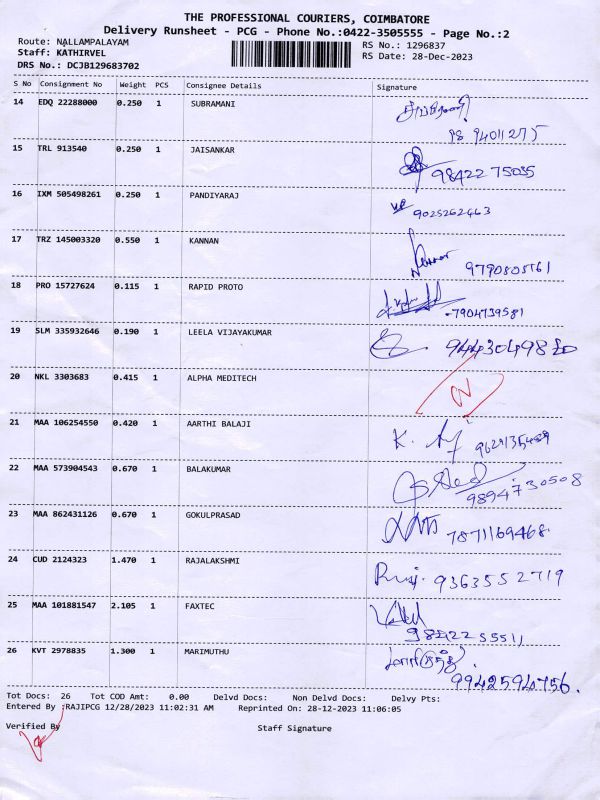 THE PROFESSIONAL COURIERS, COIMBATORE
Delivery Runsheet - PCG - Phone No.:0422-3505555 - Page No.:2
Route: NALLAMPALAYAM
RS No.: 1296837
Staff: KATHIRVEL
RS Date: 28-Dec-2023
DRS No.: DCJB129683702
S No Consignment No Weight PCS Consignee Details Signature
14 EDQ 22288000 0.250 1 SUBRAMANI
15 TRL 913540 0.250 1 JAISANKAR
9842275035
16 IXM 505498261 0.250 1 PANDIYARAJ
9025262463
17 TRZ 145003320 0.550 1 KANNAN
18 PRO 15727624 0.115 1 RAPID PROTO
7904739581
19 SLM 335932646 0.190 1 LEELA VIJAYAKUMAR
20 NKL 3303683 0.415 1 ALPHA MEDITECH
N
21 MAA 106254550 0.420 1 AARTHI BALAJI
22 MAA 573904543 0.670 1 BALAKUMAR
9894730508
23 MAA 862431126 0.670 1 GOKULPRASAD
7871169468
24 CUD 2124323 1.470 1 RAJALAKSHMI
9363552719
25 MAA 101881547 2.105 1 FAXTEC
26 KVT 2978835 1.300 1 MARIMUTHU
9942594756.
Tot Docs: 26 Tot COD Amt: 0.00 Delvd Docs: Non Delvd Docs: Delvy Pts:
Entered By :RAJIPCG 12/28/2023 11:02:31 AM Reprinted On: 28-12-2023 11:06:05
Verified By Staff Signature